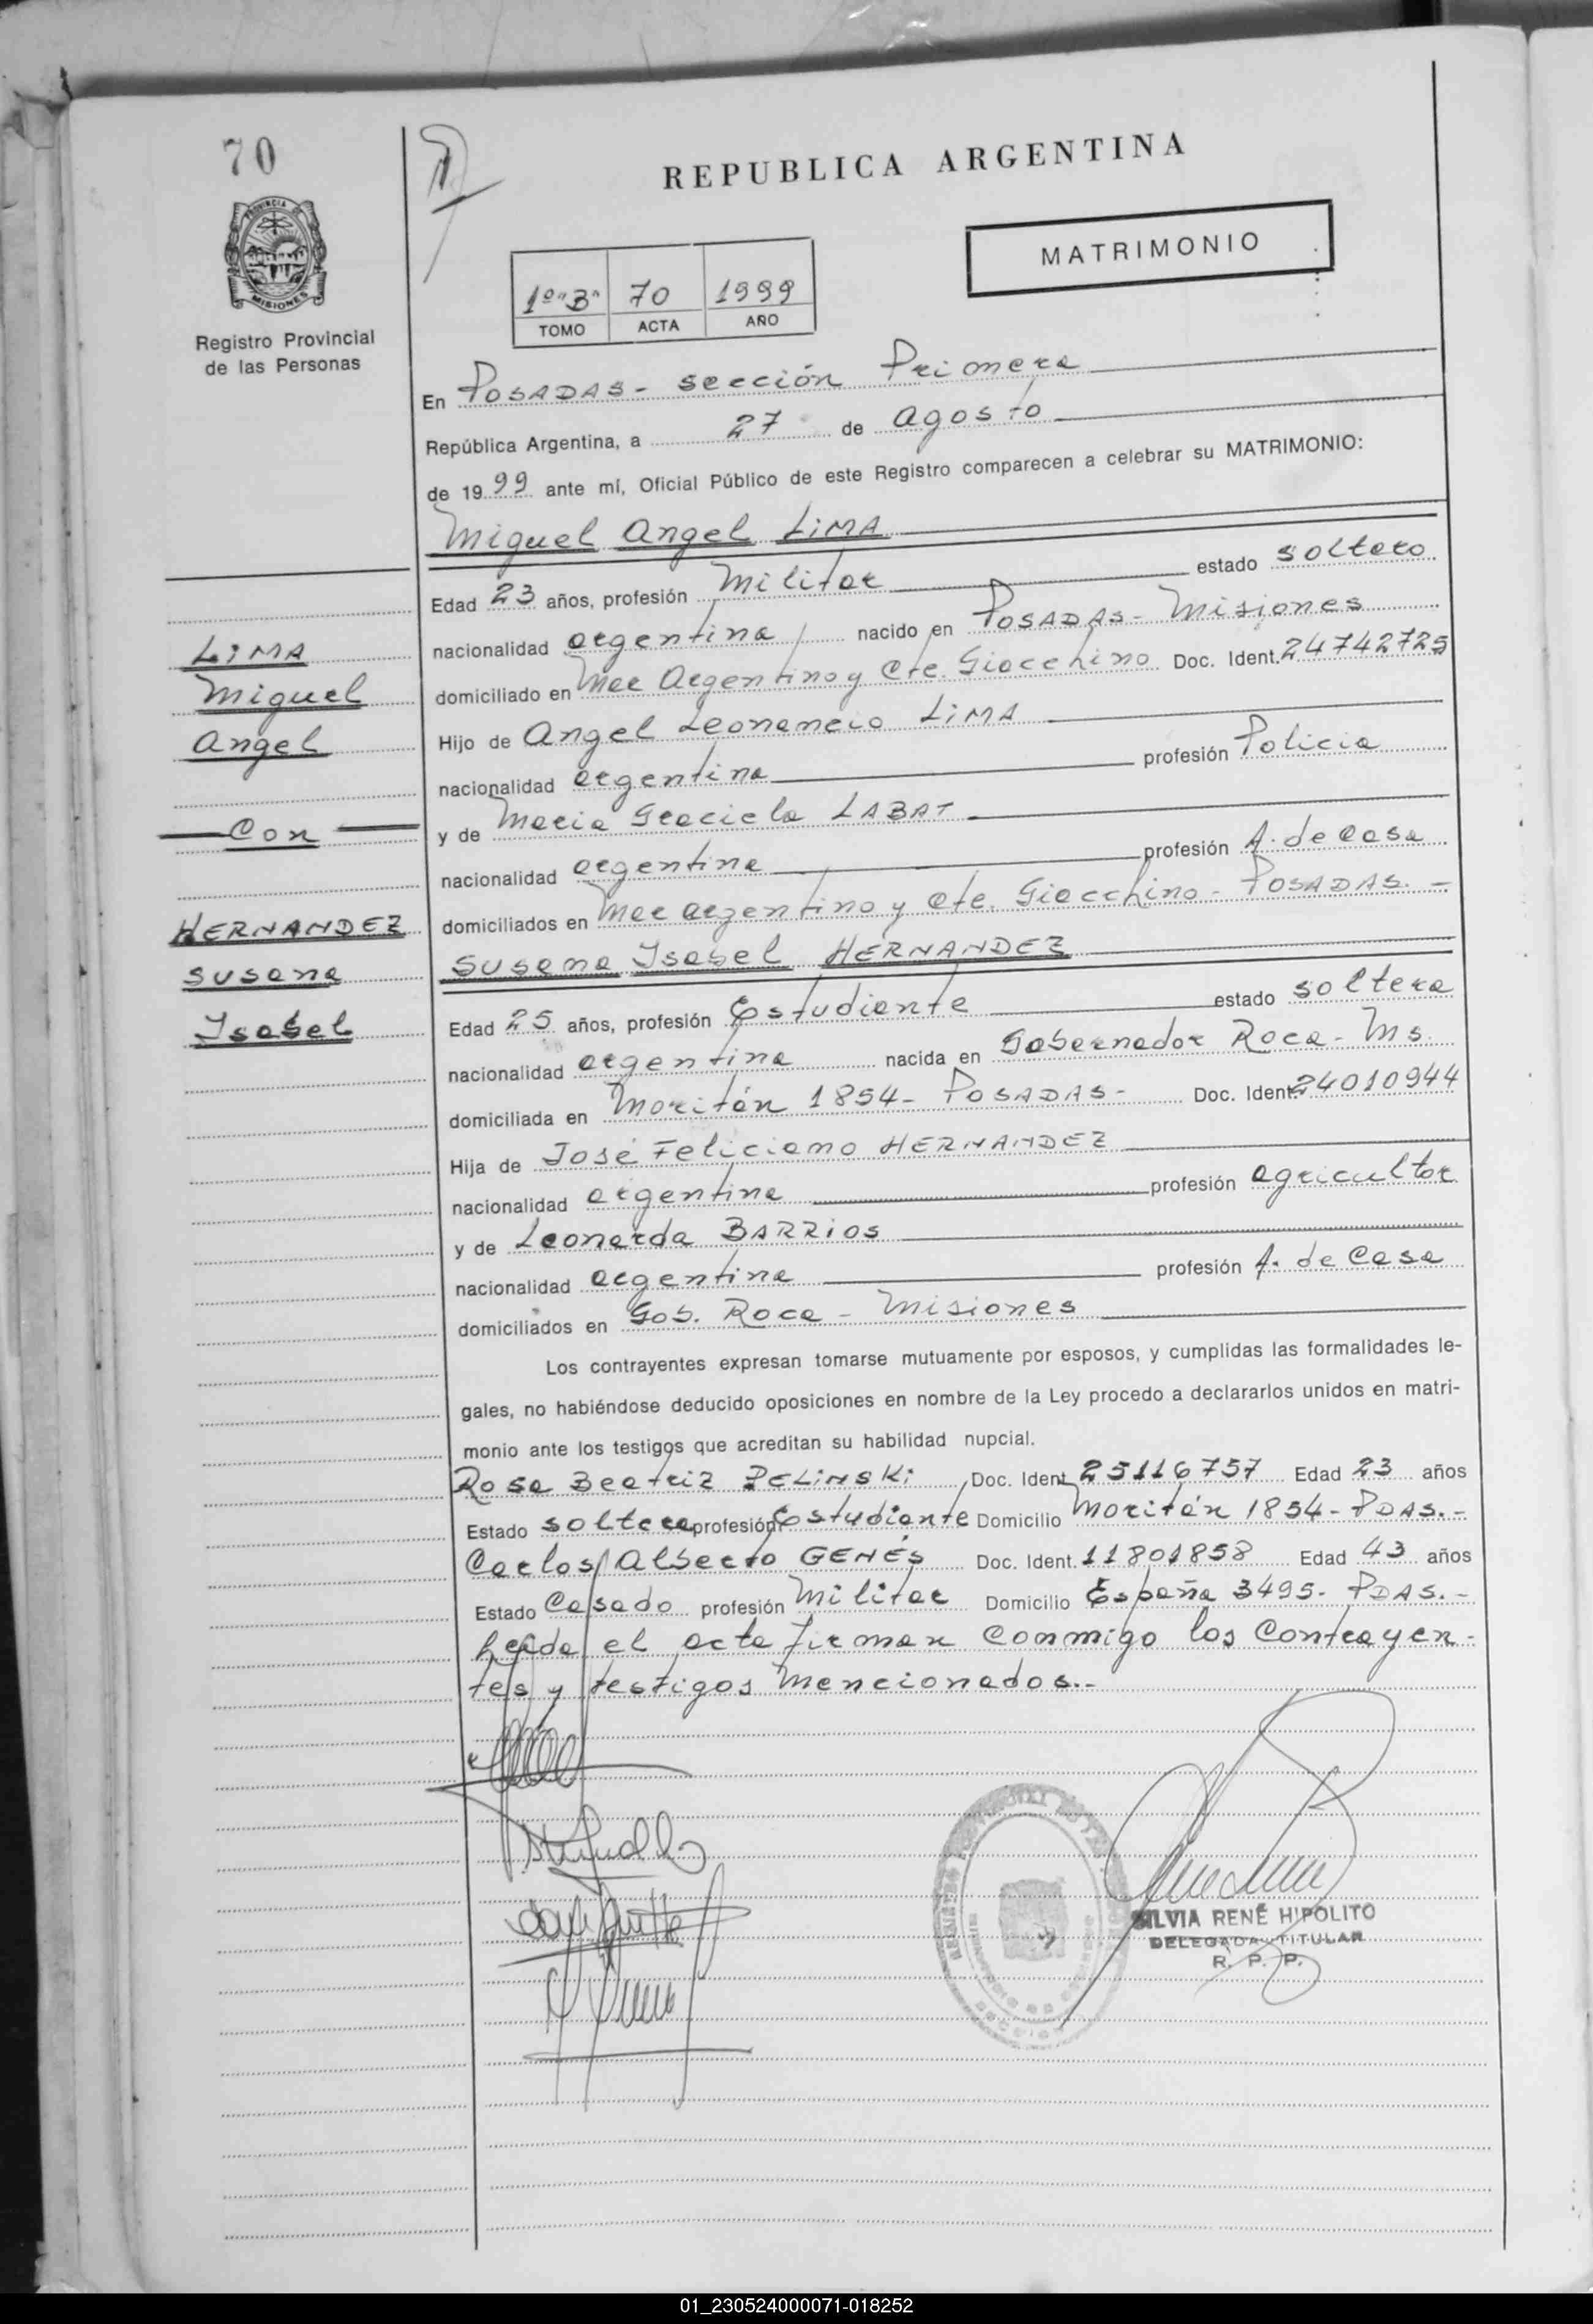 70
REPUBLICA ARGENTINA
MATRIMONIO
PROVINCIA DE
MISIONES
Registro Provincial
de las Personas
1º "B" 70 1999
TOMO ACTA AÑO
En POSADAS - sección Primera
República Argentina, a 27 de agosto
de 1999 ante mí, Oficial Público de este Registro comparecen a celebrar su MATRIMONIO:
Miguel Angel LIMA
Edad 23 años, profesión Militar estado soltero
nacionalidad argentina nacido en POSADAS - Misiones
domiciliado en Mar Argentino y Cte. Giacchino Doc. Ident. 24742725
Hijo de Angel Leonancio LIMA
nacionalidad argentina profesión Policia
y de Maria Graciela LABAT
nacionalidad argentina profesión A. de casa
domiciliados en Mar argentino y Cte. Giacchino - POSADAS. -
Susana Isabel HERNANDEZ
Edad 25 años, profesión Estudiante estado soltera
nacionalidad argentina nacida en Gobernador Roca - Ms.
domiciliada en Moritán 1854 - POSADAS - Doc. Ident. 24010944
Hija de José Feliciano HERNANDEZ
nacionalidad argentina profesión agricultor
y de Leonarda BARRIOS
nacionalidad argentina profesión A. de Casa
domiciliados en Gob. Roca - Misiones
Los contrayentes expresan tomarse mutuamente por esposos, y cumplidas las formalidades le-
gales, no habiéndose deducido oposiciones en nombre de la Ley procedo a declararlos unidos en matri-
monio ante los testigos que acreditan su habilidad nupcial.
Rosa Beatriz ZELINSKI Doc. Ident. 25116757 Edad 23 años
Estado soltera profesión Estudiante Domicilio Moritán 1854 - PDAS. -
Carlos Alberto GENÉS Doc. Ident. 11801858 Edad 43 años
Estado Casado profesión Militar Domicilio España 3495 - PDAS. -
Leída el acta firman conmigo los Contrayen-
tes y testigos mencionados. -
LIMA
Miguel
Angel
Con
HERNANDEZ
Susana
Isabel
SILVIA RENÉ HIPOLITO
DELEGADA TITULAR
R. P. P.
01_230524000071-018252